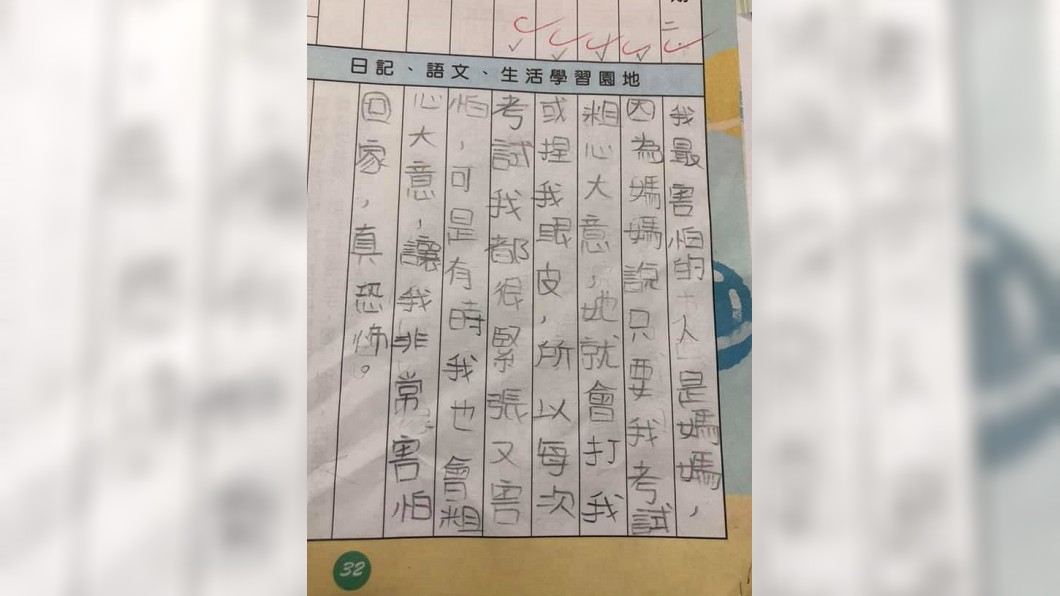 二
日記、語文、生活學習園地
我最害怕的人是媽媽，
因為媽媽說只要我考試
粗心大意，她就會打我
或捏我眼皮，所以每次
考試我都很緊張又害
怕，可是有時我也會粗
心大意，讓我非常害怕
回家，真恐怖。
32